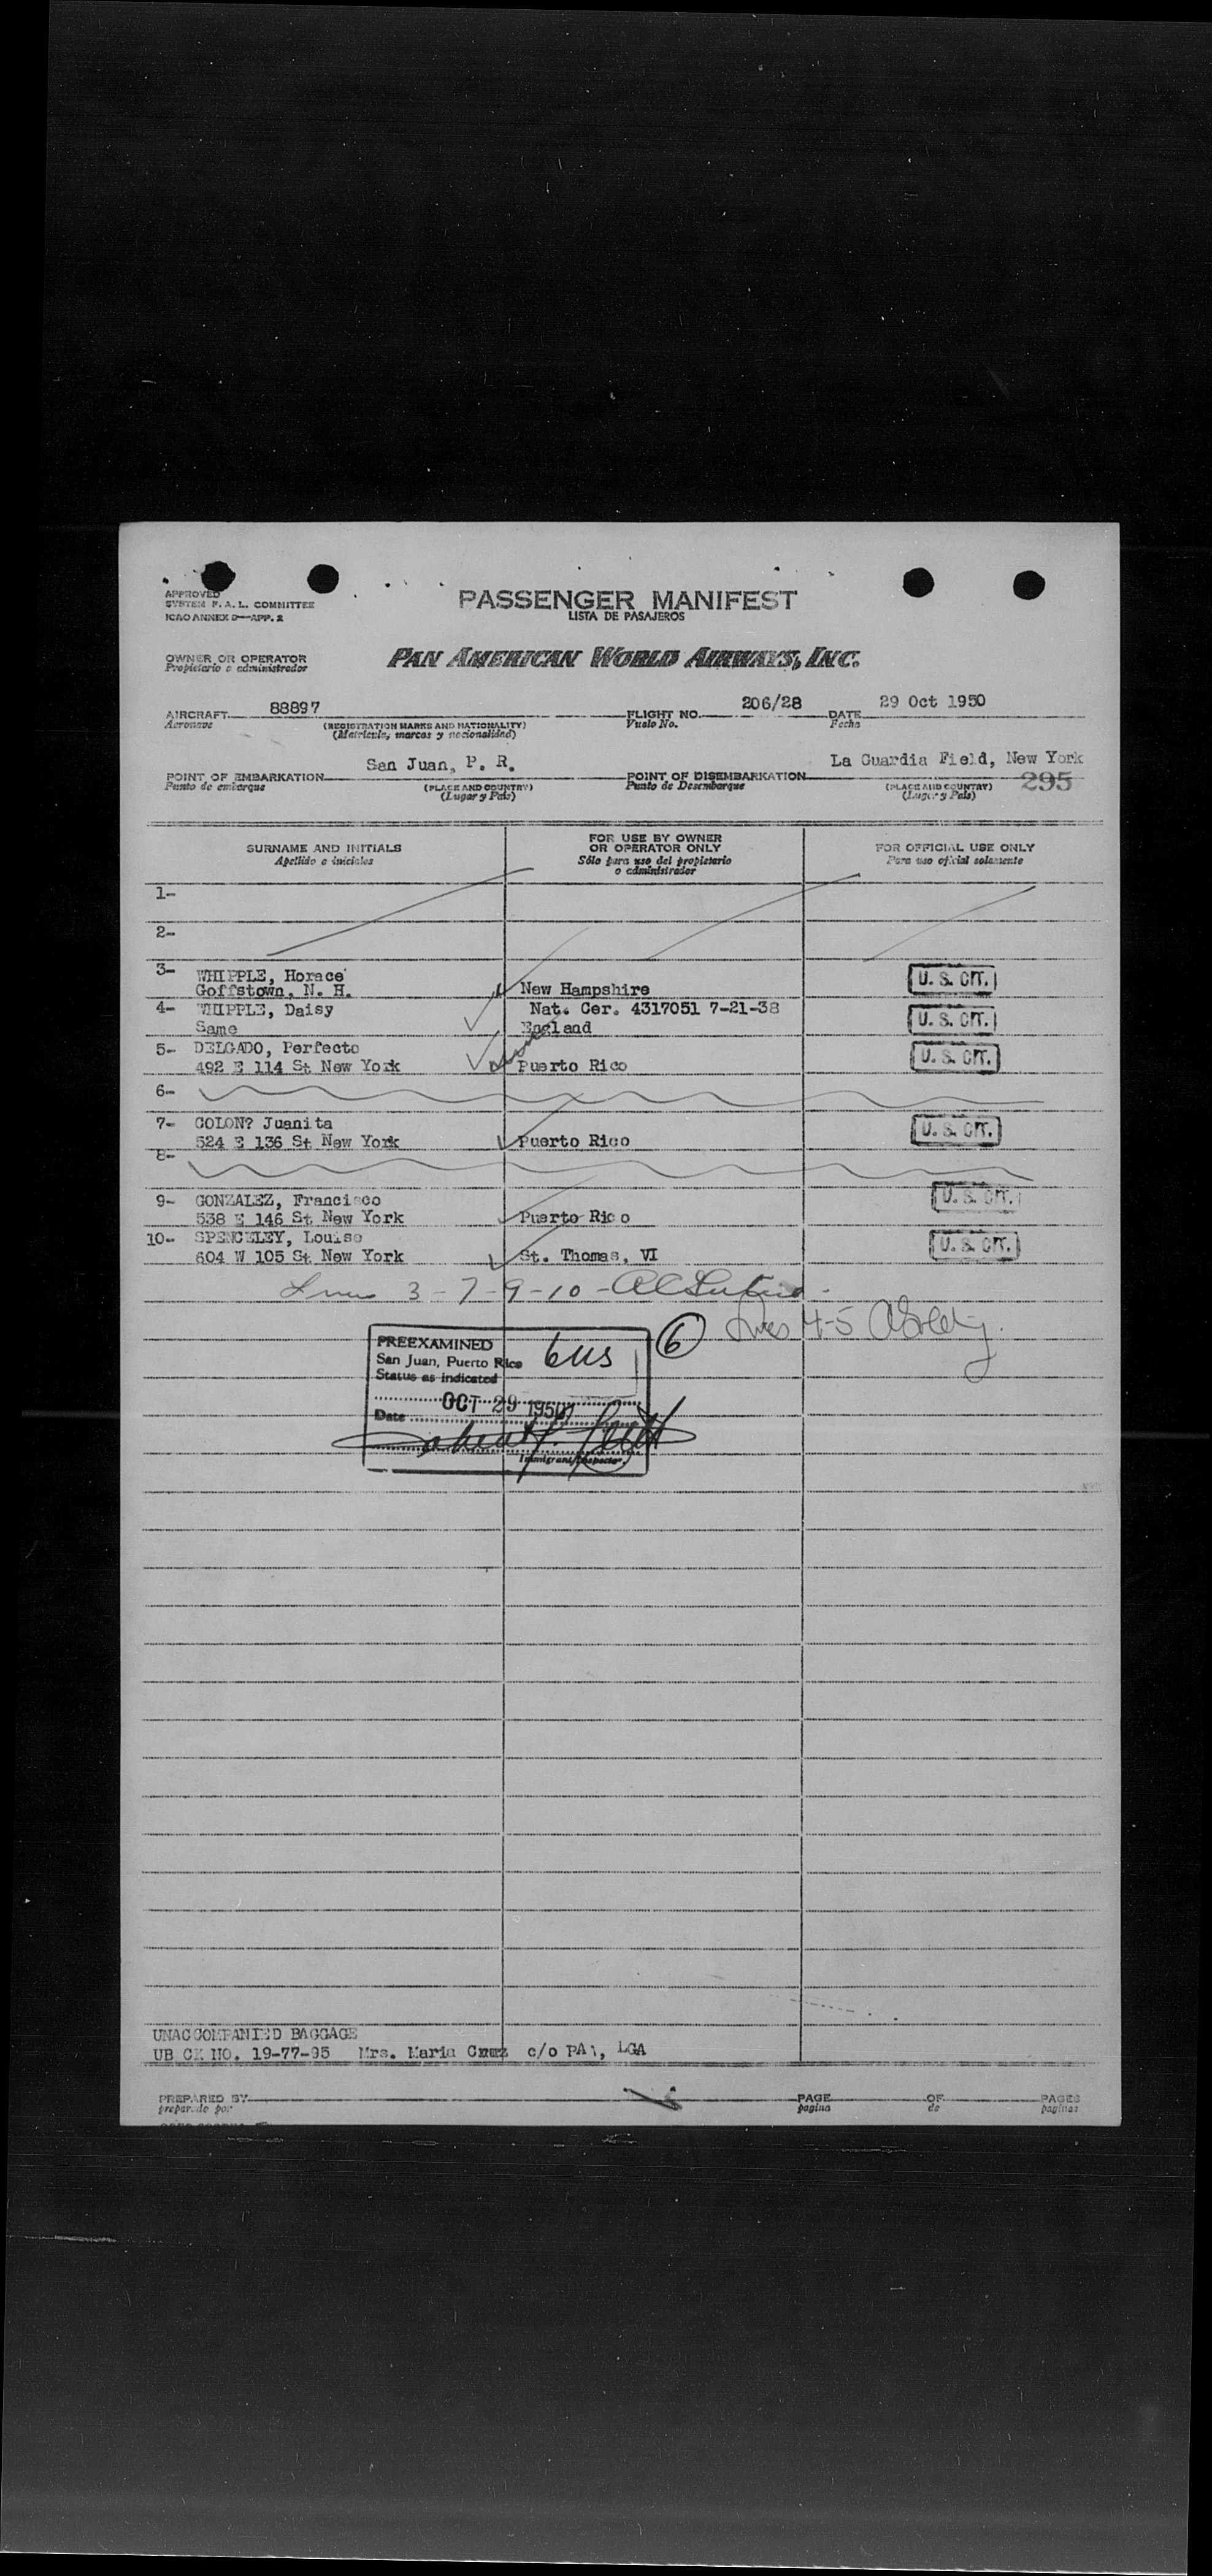 APPROVED
SYSTEM F. A. L. COMMITTEE
ICAO ANNEX D—APP. 2
PASSENGER MANIFEST
LISTA DE PASAJEROS
OWNER OR OPERATOR
Propietario o administrador
PAN AMERICAN WORLD AIRWAYS, INC.
AIRCRAFT 88897
Aeronave
(REGISTRATION MARKS AND NATIONALITY)
(Matrícula, marcas y nacionalidad)
FLIGHT NO. 206/28
Vuelo No.
DATE 29 Oct 1950
Fecha
POINT OF EMBARKATION San Juan, P. R.
Punto de embarque
(PLACE AND COUNTRY)
(Lugar y País)
POINT OF DISEMBARKATION La Guardia Field, New York
Punto de Desembarque
(PLACE AND COUNTRY)
(Lugar y País)
295
SURNAME AND INITIALS
Apellido e iniciales
FOR USE BY OWNER
OR OPERATOR ONLY
Sólo para uso del propietario
o administrador
FOR OFFICIAL USE ONLY
Para uso oficial solamente
1-
2-
3- WHIPPLE, Horace
Goffstown, N. H. New Hampshire U. S. CIT.
4- WHIPPLE, Daisy Nat. Cer. 4317051 7-21-38
Same England U. S. CIT.
5- DELGADO, Perfecto
492 E 114 St New York Puerto Rico U. S. CIT.
6-
7- COLON? Juanita
524 E 136 St New York Puerto Rico U. S. CIT.
8-
9- GONZALEZ, Francisco
538 E 146 St New York Puerto Rico U. S. CIT.
10- SPENCELEY, Louise
604 W 105 St New York St. Thomas, VI U. S. CIT.
Lines 3-7-9-10-
Lines 4-5
6
PREEXAMINED
San Juan, Puerto Rico
Status as indicated
6 US
OCT 29 1950
Date
Immigrant Inspector
UNACCOMPANIED BAGGAGE
UB CK NO. 19-77-95 Mrs. Maria Cruz c/o PAA, LGA
PREPARED BY
preparado por
PAGE
página
OF
de
PAGES
páginas